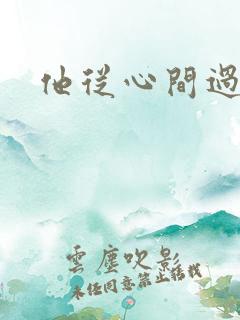 他從心間過
雲塵吹影
未經同意禁止轉載